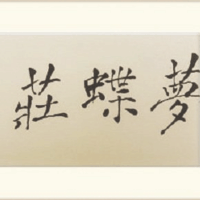 夢蝶莊